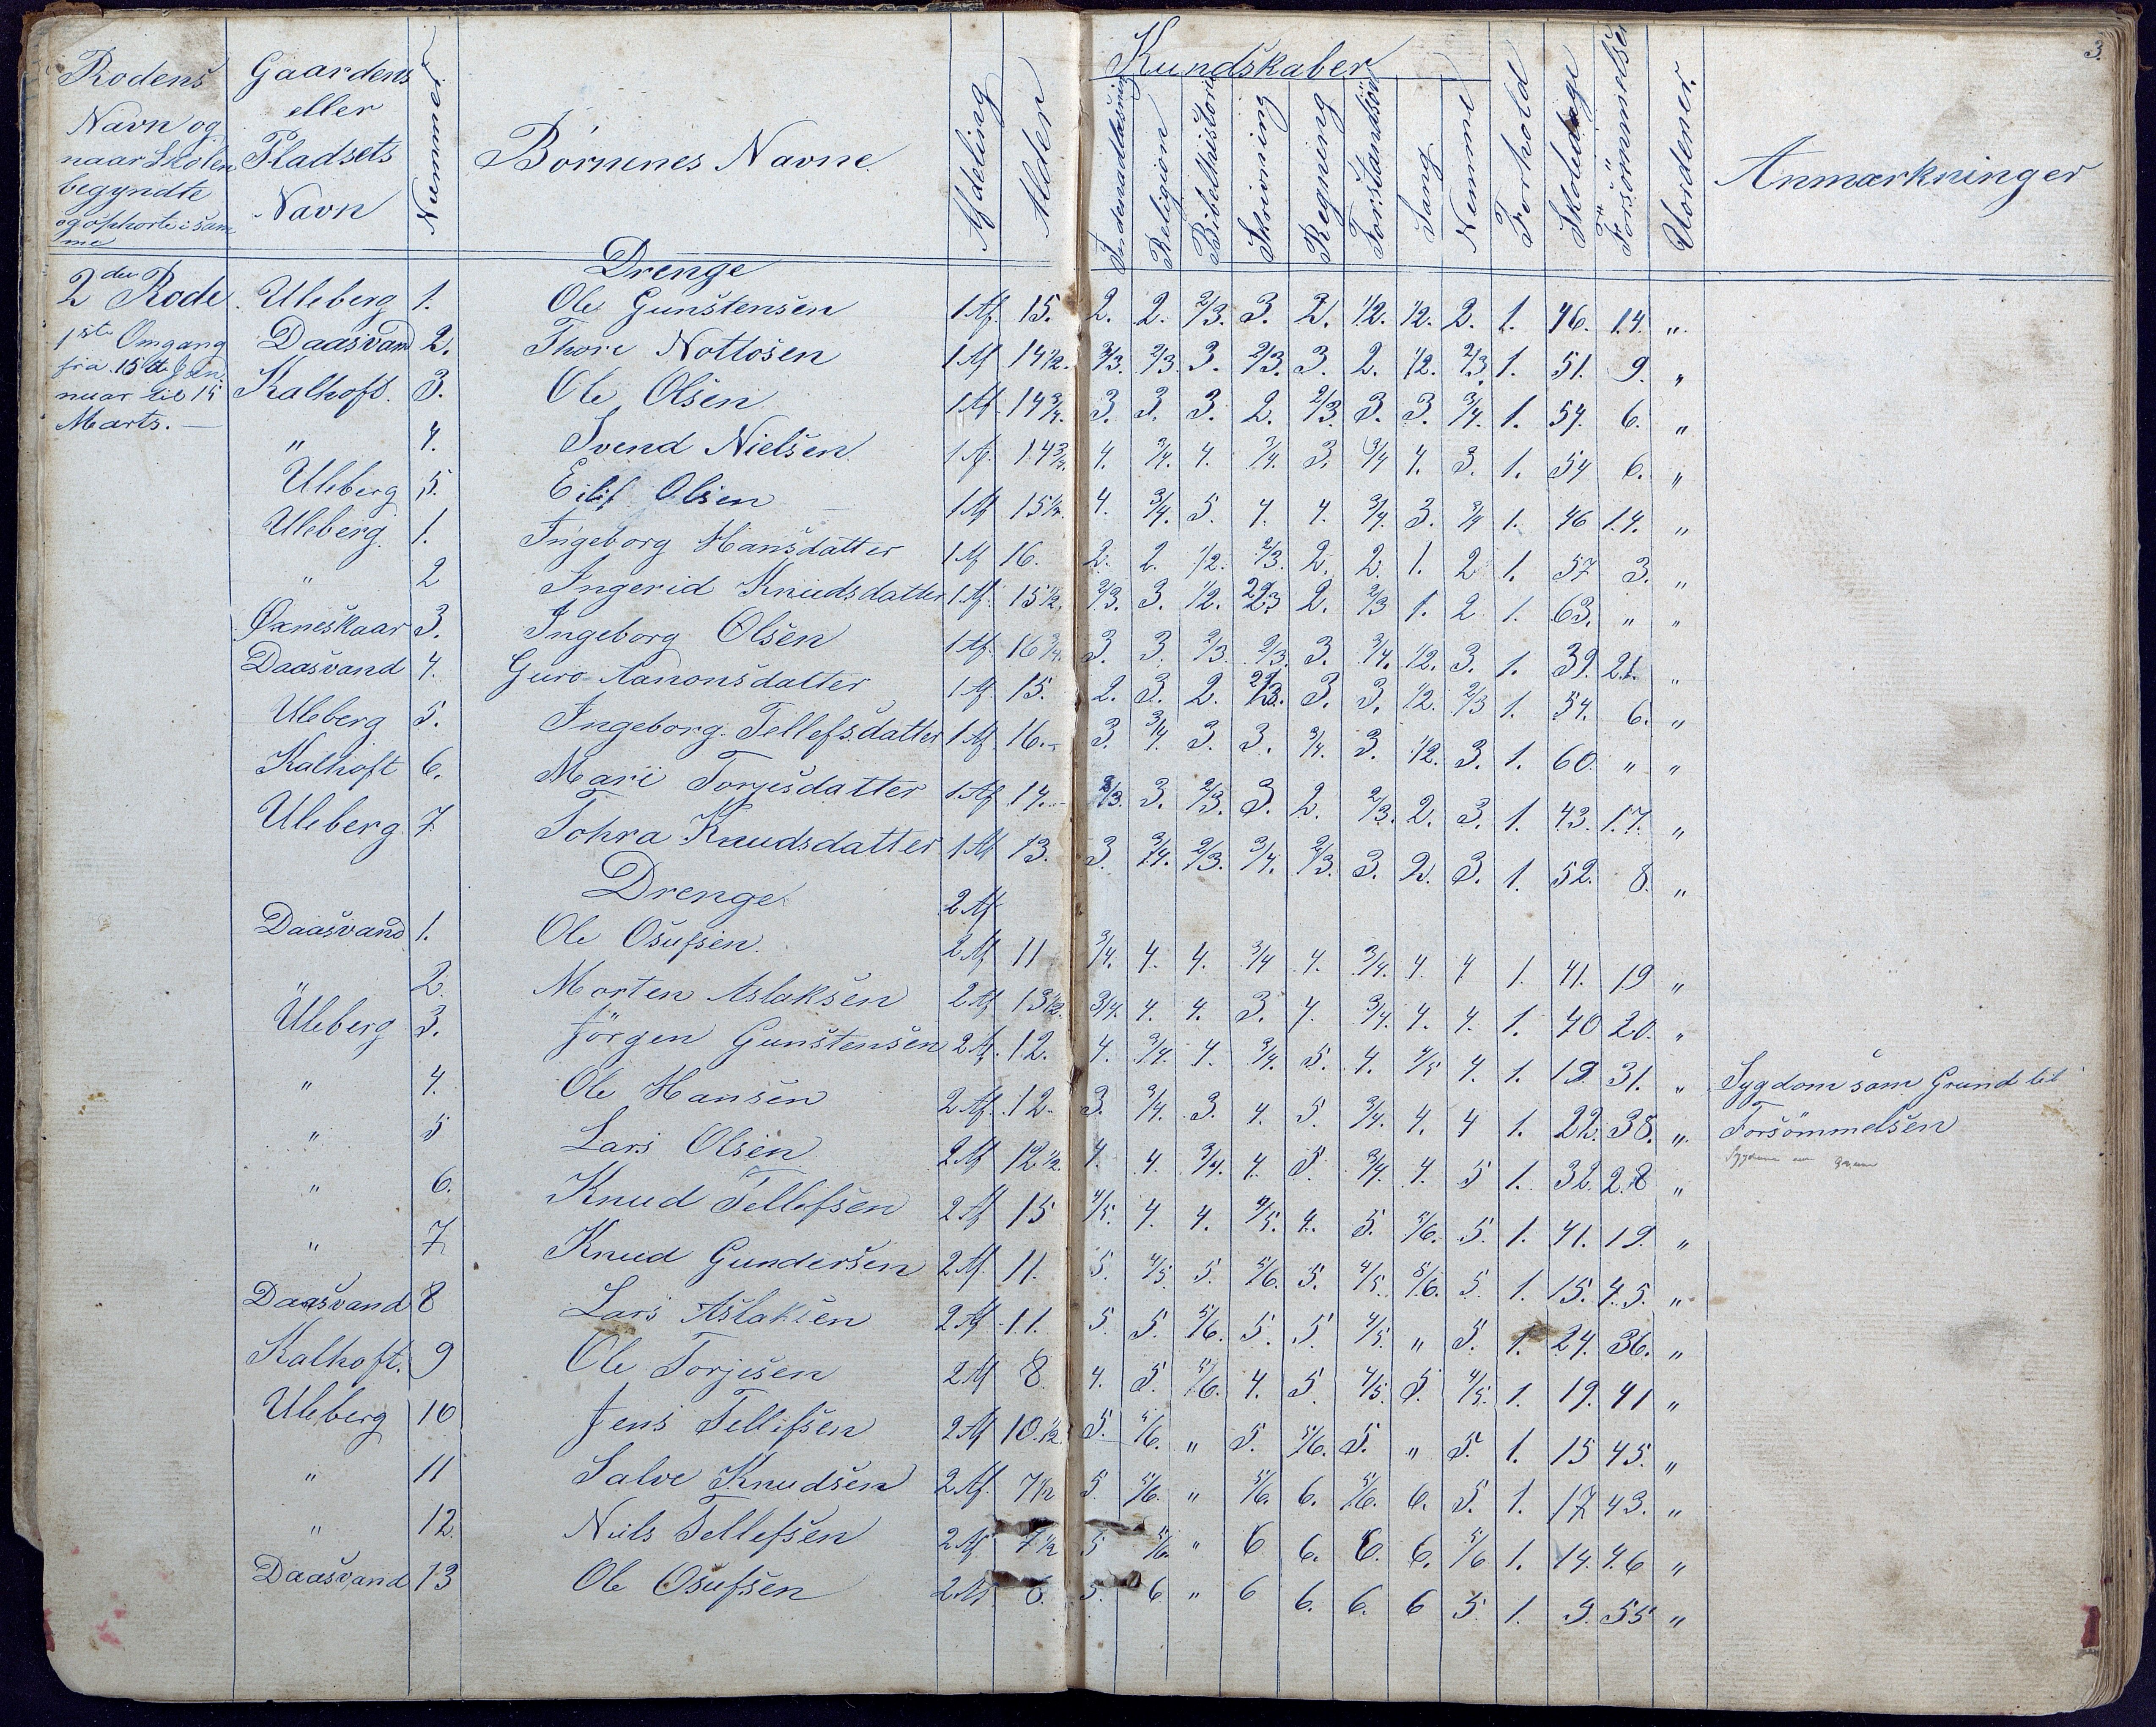 3.
Rodens Navn og naar Skolen begyndte og ophørte i samme
Gaardens eller Pladsets Navn
Nummer
Börnenes Navne
Afdeling
Alder
Kundskaber
Indenadlæsning
Religion
Bibelhistorie
Skrivning
Regning
Forstandsöv
Sang
Nemme
Forhold
Skoledage
Forsömmelser
Udordener.
Anmærkninger
2den Rode
1ste Omgang
fra 15de Jan
nuar til 15
Marts. —
Drenge
Uleberg 1. Ole Gunstensen 1 Af. 15. 2. 2. 2/3. 3. 2. 1/2. 1/2. 2. 1. 46. 14. „
Daasvand 2. Thore Nottosen 1 Af 14 1/2. 2/3. 2/3. 3. 2/3. 3. 2. 1/2. 2/3. 1. 51. 9. „
Kalhoft. 3. Ole Olsen 1 Af. 14 3/4. 3. 3. 3. 2. 2/3. 3. 3. 3/4. 1. 54. 6. „
„ 4. Svend Nielsen 1 Af. 14 3/4. 4. 3/4. 4. 3/4. 3. 3/4 4. 3. 1. 54 6. „
Uleberg 5. Eilif Olsen 1 Af 15 1/2. 4. 3/4. 5. 4. 4. 3/4. 3. 3/4 1. 46 14. „
Uleberg. 1. Ingeborg Hansdatter 1 Af 16. 2. 2. 1/2. 2/3. 2. 2. 1. 2 1. 57 3. „
„ 2 Ingerid Knudsdatter 1 Af. 15 1/2. 2/3. 3. 1/2. 2/3 2. 2/3 1. 2 1. 63. „ „
Øxneskaar 3. Ingeborg Olsen 1 Af. 16 3/4. 3. 3. 2/3. 2/3. 3. 3/4. 1/2. 3. 1. 39. 21. „
Daasvand 4. Guro Aanonsdatter 1 Af. 15. 2. 3. 2. 2/3. 3. 3. 1/2. 2/3 1. 54. 6. „
Uleberg 5. Ingeborg Tellefsdatter 1 Af 16. 3. 3/4. 3. 3. 3/4. 3. 1/2. 3. 1. 60. „ „
Kalhoft 6. Mari Torjesdatter 1 Af 14. 2/3. 3. 2/3. 3. 2. 2/3. 2. 3. 1. 43. 17. „
Uleberg 7 Tohra Knudsdatter 1 Af 13. 3. 3/4. 2/3. 3/4. 2/3. 3. 2. 3. 1. 52. 8. „
Drenge 2 Af
Daasvand 1. Ole Osufsen. 2 Af 11 3/4. 4. 4. 3/4 4. 3/4. 4. 4 1. 41. 19 „
„ 2. Morten Aslaksen 2 Af 13 1/2. 3/4. 4. 4. 3. 4. 3/4. 4. 4. 1. 40 20. „
Uleberg 3. Jörgen Gunstensen 2 Af. 12. 4. 3/4. 4. 3/4. 5. 4. 4/5 4. 1. 19 31. „ Sygdom sam Grund til
„ 4. Ole Hansen 2 Af. 12. 3. 3/4. 3. 4. 5. 3/4. 4. 4 1. 22. 38. „ Forsömmelsen
„ 5 Lars Olsen 2 Af 12 1/2. 4. 4. 3/4. 4. 5. 3/4. 4. 5 1. 32. 28 „
„ 6. Knud Tellefsen 2 Af 15 4/5. 4. 4. 4/5. 4. 5. 5/6. 5. 1. 41. 19. „
„ 7 Knud Gundersen 2 Af. 11. 5. 4/5 5. 5/6. 5. 4/5. 5/6. 5. 1. 15. 45. „
Daasvand 8 Lars Aslaksen 2 Af 11. 5. 5. 5/6. 5. 5. 4/5. „ 5. 1. 24. 36. „
Kalhoft. 9 Ole Torjesen 2 Af 8. 4. 5. 5/6. 4. 5. 4/5. 5. 4/5. 1. 19. 41 „
Uleberg 10 Jens Tellefsen 2 Af 10 1/2. 5. 5/6. „ 5. 5/6. 5. „ 5. 1. 15 45. „
„ 11 Salve Knudsen 2 Af. 7 1/2 5. 5/6. „ 5/6. 6. 5/6. 6. 5. 1. 17 43. „
„ 12. Niels Tellefsen 2 Af 7 1/2 5 5/6. „ 6 6. 6. 6. 5/6 1. 14. 46 „
Daasvand 13 Ole Osufsen 2 Af. 6. 5. 6 „ 6 6. 6. 6 5. 1. 5. 55 „